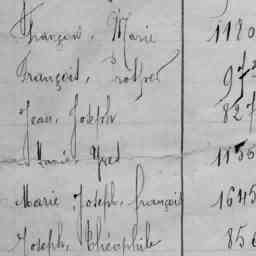 François, Marie 1180
François, Prosper
Jean, Joseph 827
Yves 1155
Marie Joseph, françois 1645
Joseph, Théophile 850